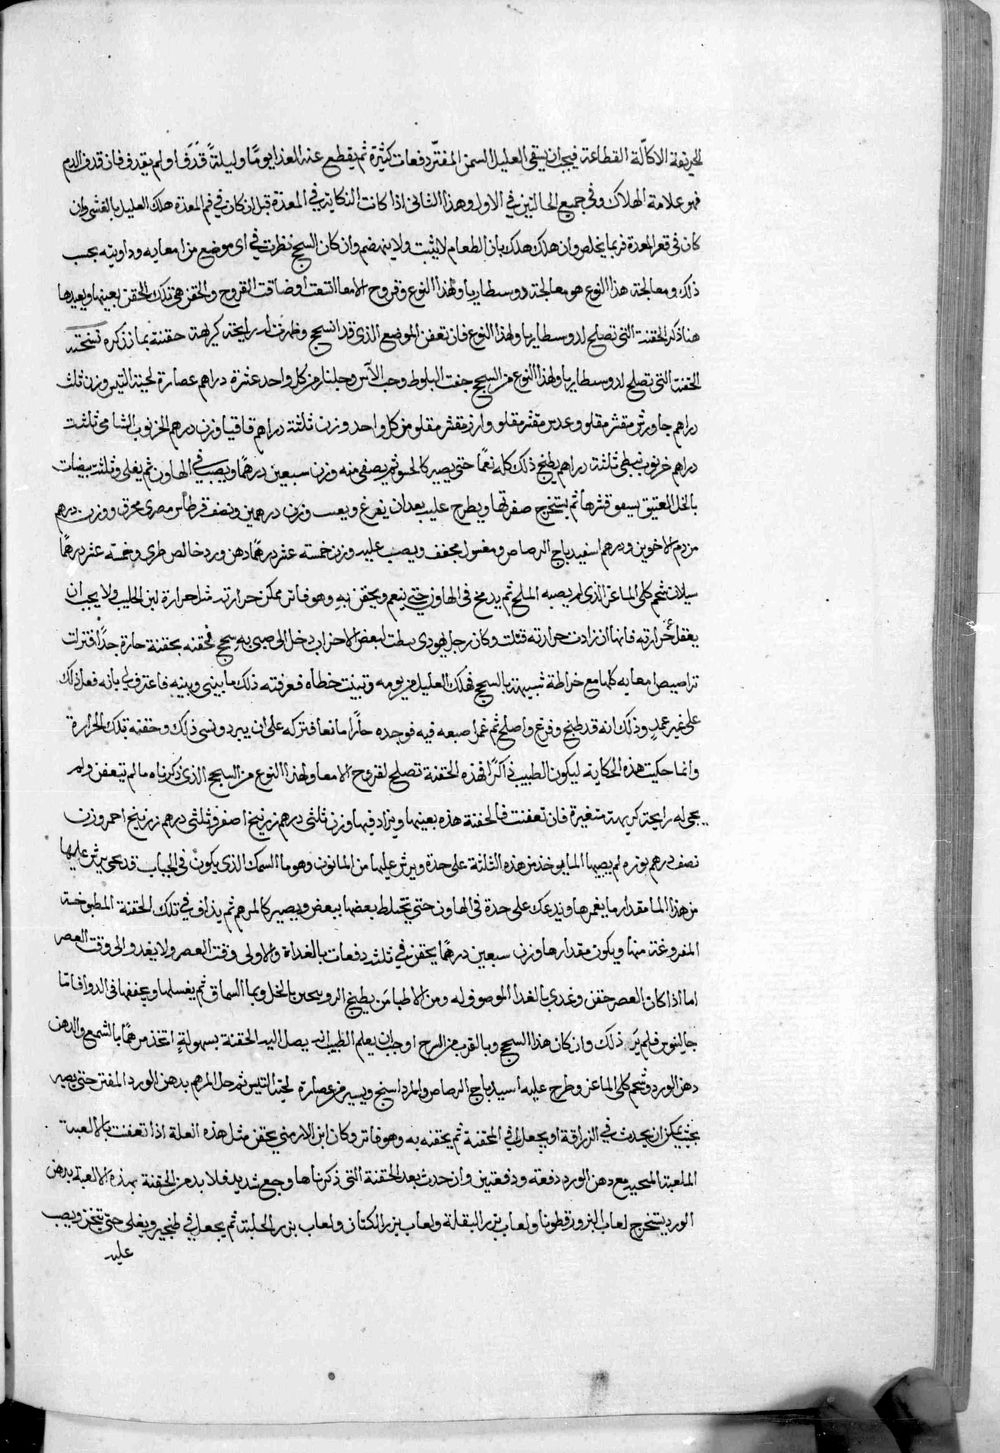 الحريفة الاكالة القطاعة فيجب ان يسقى العليل السمن المفتر دفعات كثيرة ثم يقطع عنه الغذا يومًا وليلةً قذفَ او لم يقذف فان قذف الدم
فهو علامة الهلاك وفى جميع الحالتين فى الاول وهذا الثانى اذا كانت النكاية فى المعدة قبل ان كان فى فم المعدة هلك العليل بالغشى وان
كان فى قعر المعدة فربما يخلص وان هلك هلك بان الطعام لا يثبت ولا ينهضم وان كان السحج نظرت فى اى موضع من امعايه وداويته بحسب
ذلك ومعالجة هذا النوع هو معالجة دوسنطاريا ولهذا النوع وقروح الامعا التفت او ضاقت القروح والحقن هى تلك الحقن بعينها ويعيدها
هنا ذكر الحقنة التى تصلح لدوسنطاريا ولهذا النوع فان تعفن الموضع الذى قد انسحج وظهرت له رايحة كريهة حقنته بما نذكره نسخة
الحقنة التى تصلح لدوسنطاريا ولهذا النوع من السحج جفت البلوط وحب الآس وجلنار من كل واحد عشرة دراهم عصارة لحية التيس وزن ثلث
دراهم جاورش مقشر مقلو وعدس مقشر مقلو وارز مقشر مقلو من كل واحد وزن ثلثة دراهم قاقيا وزن درهم الخرنوب الشامى ثلثت
دراهم خرنوب نبطى ثلثة دراهم يطبخ ذلك كله نعمًا حتى يصير كالحسو ثم يصفى منه وزن سبعين درهمًا ويصب فى الهاون ثم يغلى وثلثة بيضات
بالخل العتيق تسقو قشرها ثم يستخرج صفرتها ويطرح عليه بعد ان يفرغ وزن درهمين ونصف قرطاس مصرى محرق ووزن درهم
من دم الاخوين ودرهم اسفيداج الرصاص ومغسول مجفف ويصب عليه وزن خمسة عشر درهمًا دهن ورد خالص طرى وخمسة عشر درهمًا
سيلان شحم كلى الماعز الذى لم يصبه الملح ثم يدمخ فى الهاون حتى ينعم ويحقن به وهو فاتر ممكن حرارته مثل حرارة لبن الحليب ولا يجب ان
يغفل حرارته فانها ان زادت حرارته قتلت وكان رجل يهودى لبعض الاحزاب دخل الى صبى به سحج فحقنه بحقنة حارة جدًا فنزلت
تراصيص امعايه كلها مع خراطة شبيهة بالسحج فهلك العليل من يومه وتبينت خطاه فعرفته ذلك ما بينى وبينه فاعترف لى بانه فعل ذلك
على غير عمدٍ وذلك انه قد طبخ وفرغ واصلح ثم غمز اصبعه فيه فوجده حارًا مانعا فتركه على ان يبرد ونسى ذلك وحقنه بتلك الحرارة
وانما حكيت هذه الحكاية ليكون الطبيب ذاكرًا فهذه الحقنة تصلح لقروح الامعا ولهذا النوع من السحج الذى ذكرناه ما لم تعفن ولم
يجى له رايحة كريهة متغيرة فان تعفنت فالحقنة هذه بعينها ويزاد فيها وزن ثلثى درهم زرنيخ اصفر وثلثى درهم زرنيخ احمر وزن
نصف درهم نوره لم يصبها الما يوخذ من هذه الثلثة على حدة ويرش عليها من المانون وهو ما السمك الذى يكون فى الجباب قد عجى يرش عليها
من هذا الما مقدار ما يغمرها ويدعك على حدة فى الهاون حتى يختلط بعضها ببعض ويصير كالمرهم ثم يذاف فى تلك الحقنة المطبوخة
المفروغة منها ويكون مقدارها وزن سبعين درهمًا يحقن فى ثلث دفعات بالغداة والاولى وقت العصر ولا يغدو الى وقت العصر
اما اذا كان العصر حقن وغدى بالغدا الموصوف له ومن الاطبا من يطبخ الزرنيخين بالخل وبما السماق ثم يغسلها ويجففها فى الدوا فاما
جالينوس فلم ير ذلك وان كان هذا السحج وبالقرب من الشرج او جب ان يعلم الطبيب انه يصل اليه الحقنة بسهولةٍ اتخذ مرهمًا بالشمع والدهن
دهن الورد وشحم كلى الماعز وطرح عليه اسفيداج الرصاص والمرداسنج ويسير من عصارة لحية التيس ثم حل المرهم بدهن الورد المفتر حتى يصير
بحيث يمكن ان يحدث فى الزراقة او يجعل فى المحقنة ثم يحقنه به وهو فاتر وكان ابن الارمنى يحقن مثل هذه العلة اذا تعفنت بالالعبة
الملعبة مع دهن الورد دفعه ودفعتين وان حدث بعد الحقنة التى ذكرناها وجع شديد فلا بد من الحقنة بهذه الالعبة بدهن
الورد يستخرج لعاب البزور قطونا ولعاب بزر البقلة ولعاب بزر الكتان ولعاب بزر الحلبة ثم يجعل فى طنجير ويغلى حتى يثخن ويصب
عليه